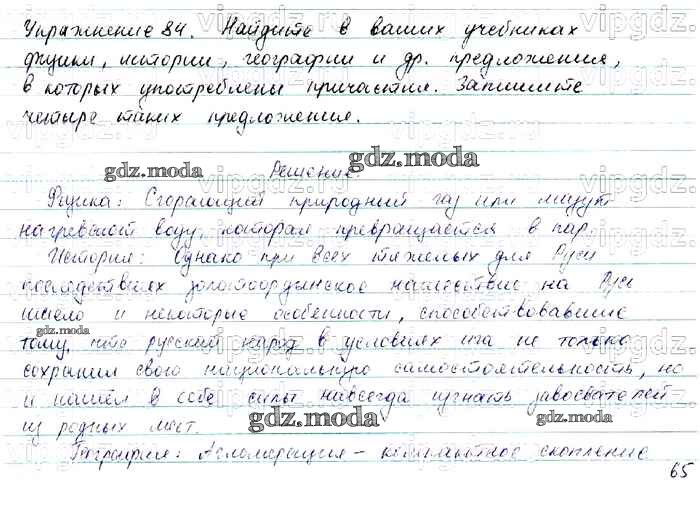 Упражнение 84. Найдите в ваших учебниках
физики, истории, географии и др. предложения,
в которых употреблены причастия. Запишите
четыре таких предложения.
gdz.moda
Решение:
gdz.moda
Физика: Сгорающий природный газ или мазут
нагревают воду, которая превращается в пар.
История: Однако при всех тяжелых для Руси
последствиях золотоордынское нашествие на Русь
имело и некоторые особенности, способствовавшие
gdz.moda
тому, что русский народ в условиях ига не только
сохранил свою национальную самостоятельность, но
и нашёл в себе силы навсегда изгнать завоевателей
gdz.moda
gdz.moda
из родных мест.
География: Агломерация – компактное скопление
65